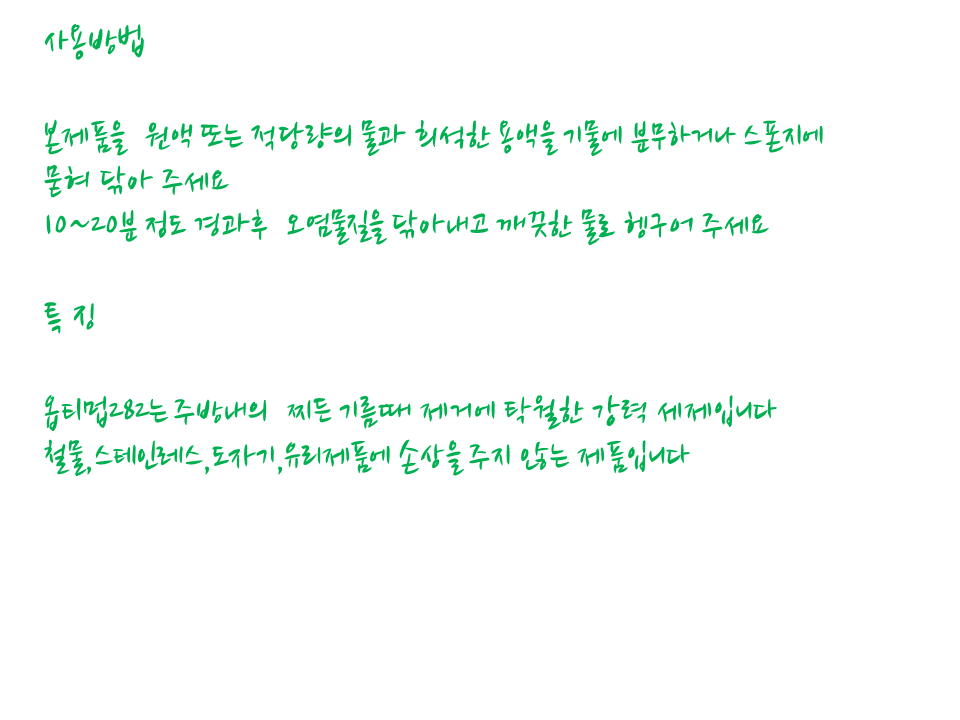 사용방법
본제품을 원액 또는 적당량의 물과 희석한 용액을 기물에 분무하거나 스폰지에
묻혀 닦아 주세요
10~20분 정도 경과후 오염물질을 닦아내고 깨끗한 물로 헹구어 주세요
특 징
옵티멈282는 주방내의 찌든 기름때 제거에 탁월한 강력 세제입니다
철물,스테인레스,도자기,유리제품에 손상을 주지 않는 제품입니다